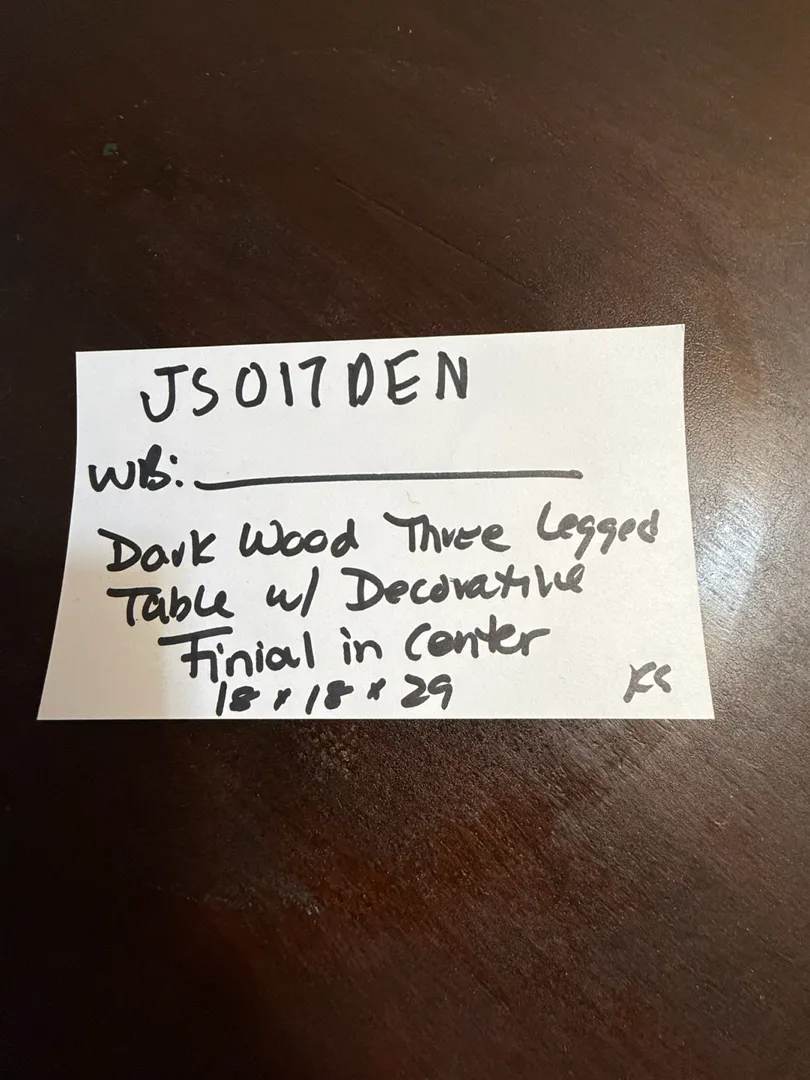 JS017DEN
WB: ___________
Dark Wood Three Legged
Table w/ Decorative
Finial in Center
18 x 18 x 29
KS